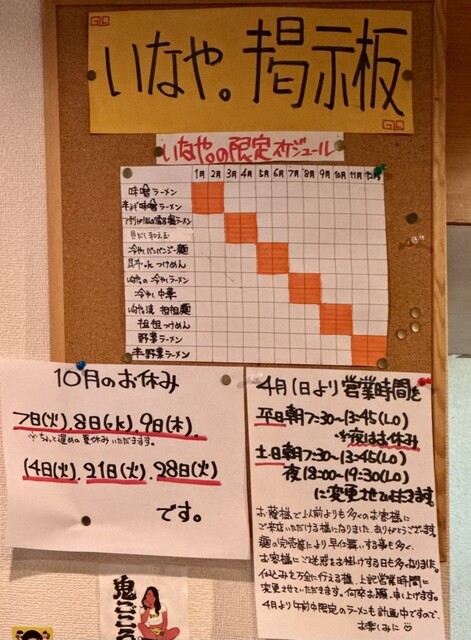 いなや。掲示板
いなや。の限定スケジュール
1月 2月 3月 4月 5月 6月 7月 8月 9月 10月 11月 12月
味噌ラーメン
辛みそ味噌ラーメン
ラーメン
冷やしバンバンジー麺
つけめん
いなや。の冷やしラーメン
冷やし中華
いなや。流 担担麺
担担つけめん
野菜ラーメン
辛野菜ラーメン
10月のお休み
7日(火).8日(水).9日(木).
※ちょっと遅めの夏休みいただきます。
14日(火).21日(火).28日(火)
です。
4月1日より営業時間を
平日朝7:30〜13:45(LO)
※夜はお休み
土日朝7:30〜13:45(LO)
夜18:00〜19:30(LO)
に変更させていただきます。
お陰様で以前よりも多くのお客様に
ご来店いただける様になりました。ありがとうございます。
麺の完売等により早仕舞いする事も多く、
お客様にご迷惑をお掛けする日も多くなりました。
仕込みを万全に行える様、上記営業時間に
変更させていただきます。何卒お願い申し上げます。
4月より午前中限定のラーメンも計画中ですので、
お楽しみに
鬼ごころ